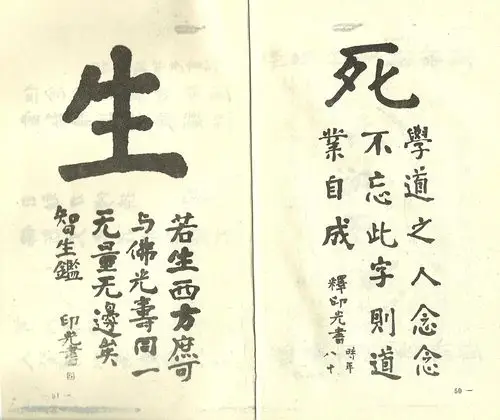 死
學道之人念念
不忘此字則道
業自成
釋印光書
時年
八十
60 —
生
若生西方庶可
与佛光壽同一
无量无邊矣
智生鑑
印光書